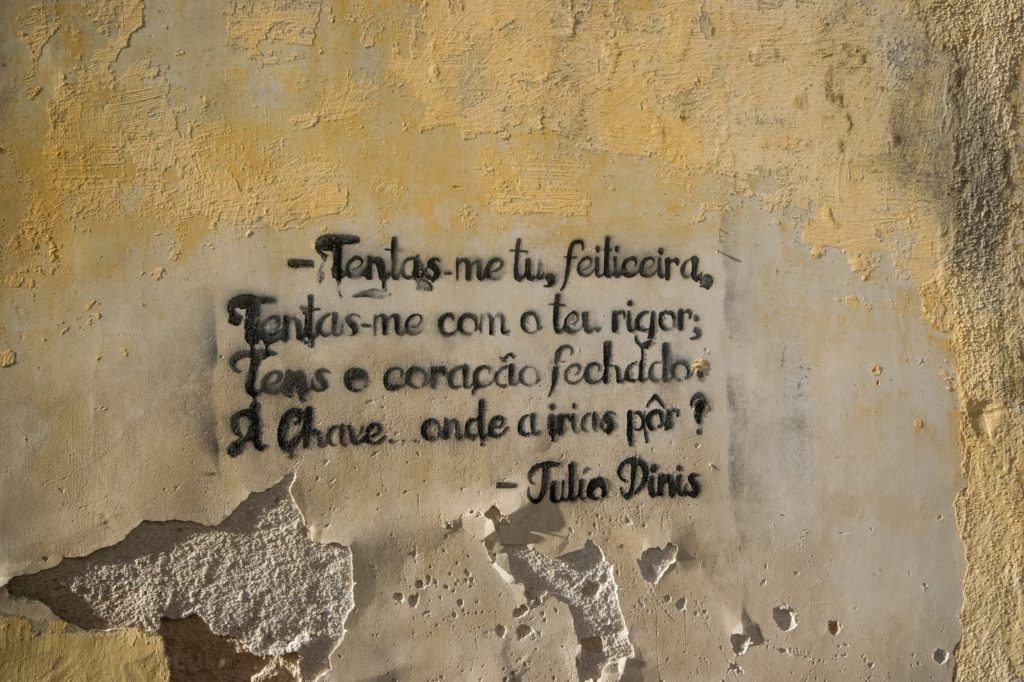 - Tentas-me tu, feiticeira,
Tentas-me com o teu rigor;
Tens o coração fechado.
A Chave... onde a irias pôr?
- Julio Dinis